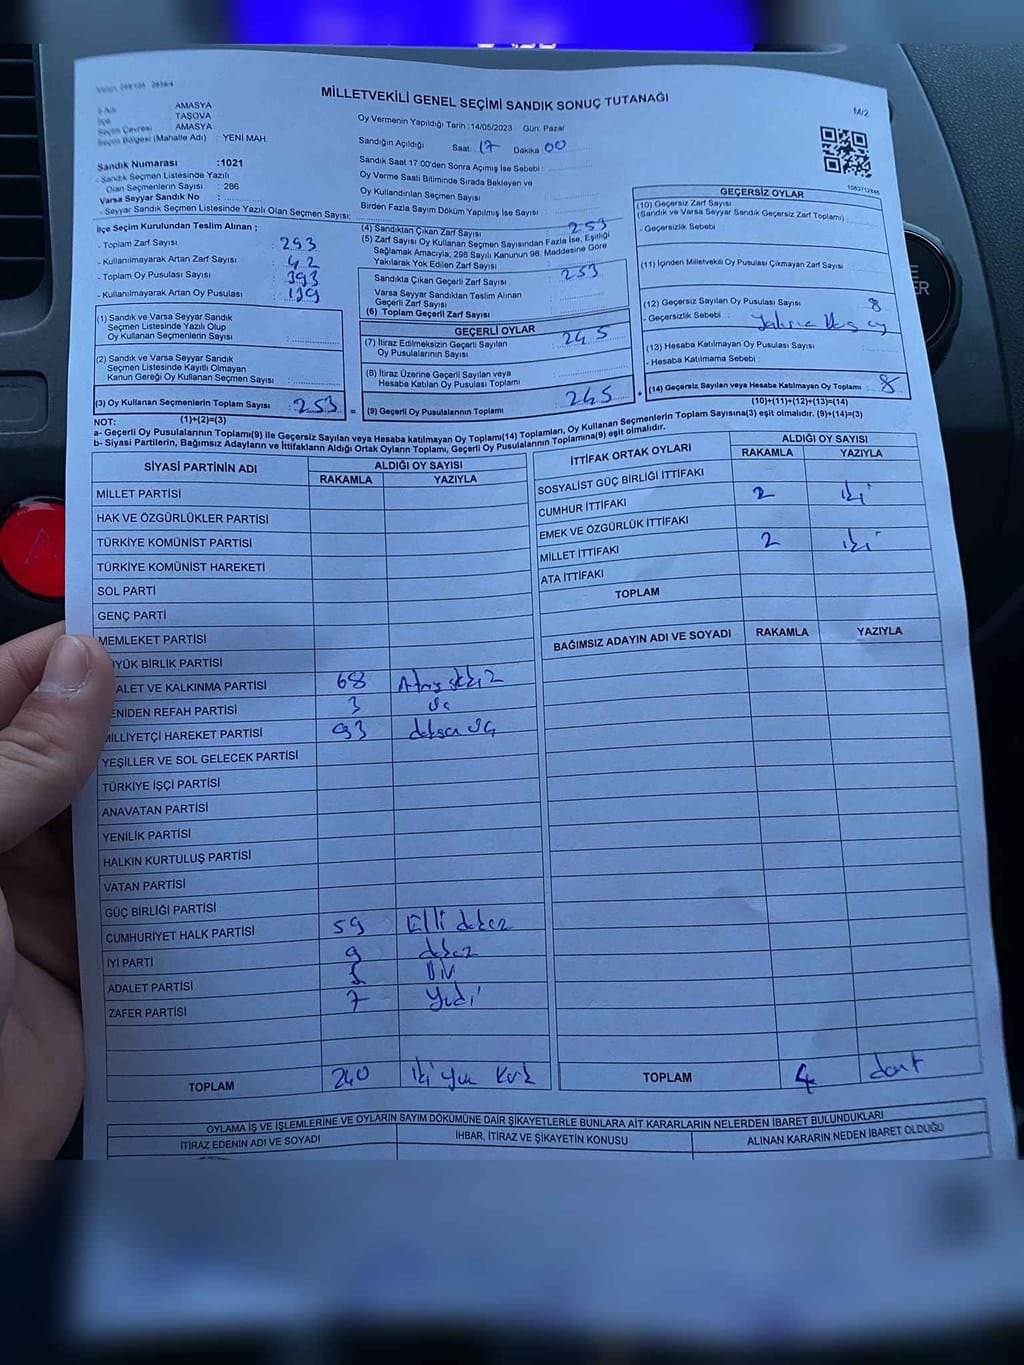 MİLLETVEKİLİ GENEL SEÇİMİ SANDIK SONUÇ TUTANAĞI
M/2
AMASYA
TAŞOVA
Seçim Çevresi : AMASYA
Seçim Bölgesi (Mahalle Adı) : YENİ MAH.
Sandık Numarası :1021
- Sandık Seçmen Listesinde Yazılı
Olan Seçmenlerin Sayısı : 286
Varsa Seyyar Sandık No :
- Seyyar Sandık Seçmen Listesinde Yazılı Olan Seçmen Sayısı:
Oy Vermenin Yapıldığı Tarih :14/05/2023 Gün: Pazar
Sandığın Açıldığı Saat: 17 Dakika 00
Sandık Saat 17:00'den Sonra Açımış İse Sebebi :
Oy Verme Saati Bitiminde Sırada Bekleyen ve
Oy Kullandırılan Seçmen Sayısı :
Birden Fazla Sayım Döküm Yapılmış İse Sayısı :
İlçe Seçim Kurulundan Teslim Alınan ;
- Toplam Zarf Sayısı : 293
- Kullanılmayarak Artan Zarf Sayısı : 42
- Toplam Oy Pusulası Sayısı : 393
- Kullanılmayarak Artan Oy Pusulası : 139
(1) Sandık ve Varsa Seyyar Sandık
Seçmen Listesinde Yazılı Olup
Oy Kullanan Seçmenlerin Sayısı :
(2) Sandık ve Varsa Seyyar Sandık
Seçmen Listesinde Kayıtlı Olmayan
Kanun Gereği Oy Kullanan Seçmen Sayısı :
(3) Oy Kullanan Seçmenlerin Toplam Sayısı : 253 =
(1)+(2)=(3)
(4) Sandıktan Çıkan Zarf Sayısı : 253
(5) Zarf Sayısı Oy Kullanan Seçmen Sayısından Fazla İse, Eşitliği
Sağlamak Amacıyla, 298 Sayılı Kanunun 98. Maddesine Göre
Yakılarak Yok Edilen Zarf Sayısı :
Sandıkta Çıkan Geçerli Zarf Sayısı : 253
Varsa Seyyar Sandıktan Teslim Alınan
Geçerli Zarf Sayısı :
(6) Toplam Geçerli Zarf Sayısı :
GEÇERLİ OYLAR
(7) İtiraz Edilmeksizin Geçerli Sayılan
Oy Pusulalarının Sayısı : 245
(8) İtiraz Üzerine Geçerli Sayılan veya
Hesaba Katılan Oy Pusulası Toplamı :
(9) Geçerli Oy Pusulalarının Toplamı : 245
GEÇERSİZ OYLAR
(10) Geçersiz Zarf Sayısı
(Sandık ve Varsa Seyyar Sandık Geçersiz Zarf Toplamı) :
- Geçersizlik Sebebi :
(11) İçinden Milletvekili Oy Pusulası Çıkmayan Zarf Sayısı :
(12) Geçersiz Sayılan Oy Pusulası Sayısı : 8
- Geçersizlik Sebebi :
(13) Hesaba Katılmayan Oy Pusulası Sayısı :
- Hesaba Katılmama Sebebi :
(14) Geçersiz Sayılan veya Hesaba Katılmayan Oy Toplamı : 8
(10)+(11)+(12)+(13)=(14)
NOT:
a- Geçerli Oy Pusulalarının Toplamı(9) ile Geçersiz Sayılan veya Hesaba katılmayan Oy Toplamı(14) Toplamları, Oy Kullanan Seçmenlerin Toplam Sayısına(3) eşit olmalıdır. (9)+(14)=(3)
b- Siyasi Partilerin, Bağımsız Adayların ve İttifakların Aldığı Ortak Oyların Toplamı, Geçerli Oy Pusulalarının Toplamına(9) eşit olmalıdır.
SİYASİ PARTİNİN ADI
ALDIĞI OY SAYISI
RAKAMLA YAZIYLA
MİLLET PARTİSİ
HAK VE ÖZGÜRLÜKLER PARTİSİ
TÜRKİYE KOMÜNİST PARTİSİ
TÜRKİYE KOMÜNİST HAREKETİ
SOL PARTİ
GENÇ PARTİ
MEMLEKET PARTİSİ
YÜK BİRLİK PARTİSİ
ALET VE KALKINMA PARTİSİ 68
ENİDEN REFAH PARTİSİ 3 üç
MİLLİYETÇİ HAREKET PARTİSİ 93 doksan üç
YEŞİLLER VE SOL GELECEK PARTİSİ
TÜRKİYE İŞÇİ PARTİSİ
ANAVATAN PARTİSİ
YENİLİK PARTİSİ
HALKIN KURTULUŞ PARTİSİ
VATAN PARTİSİ
GÜÇ BİRLİĞİ PARTİSİ
CUMHURİYET HALK PARTİSİ 59 Elli dokuz
İYİ PARTİ 9 dokuz
ADALET PARTİSİ 1 Bir
ZAFER PARTİSİ 7 Yedi
TOPLAM 240 iki yüz kırk
İTTİFAK ORTAK OYLARI
ALDIĞI OY SAYISI
RAKAMLA YAZIYLA
SOSYALİST GÜÇ BİRLİĞİ İTTİFAKI
CUMHUR İTTİFAKI 2 iki
EMEK VE ÖZGÜRLÜK İTTİFAKI
MİLLET İTTİFAKI 2 iki
ATA İTTİFAKI
TOPLAM
BAĞIMSIZ ADAYIN ADI VE SOYADI RAKAMLA YAZIYLA
TOPLAM 4 dört
OYLAMA İŞ VE İŞLEMLERİNE VE OYLARIN SAYIM DÖKÜMÜNE DAİR ŞİKAYETLERLE BUNLARA AİT KARARLARIN NELERDEN İBARET BULUNDUKLARI
İTİRAZ EDENİN ADI VE SOYADI
İHBAR, İTİRAZ VE ŞİKAYETİN KONUSU
ALINAN KARARIN NEDEN İBARET OLDUĞU